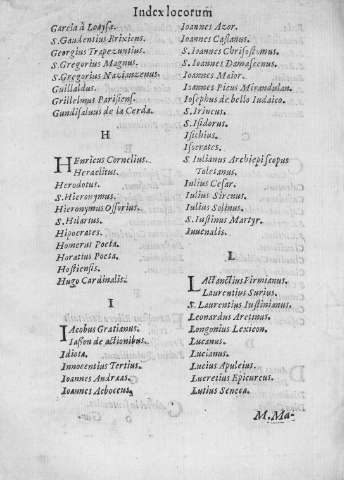 Index locorum
Garcia à Loaysa.
S. Gaudentius Brixiens.
Georgius Trapezuntius.
S. Gregorius Magnus.
S. Gregorius Nazianzenus.
Guillaldus.
Grilielmus Parisiens.
Gundisaluus de la Cerda.
H
HEnricus Cornelius.
Heraclitus.
Herodotus.
S. Hieronymus.
Hieronymus Ossorius.
S. Hilarius.
Hipocrates.
Homerus Poeta.
Horatius Poeta.
Hostiensis.
Hugo Cardinalis.
I
IAcobus Gratianus.
Iason de actionibus.
Idiota.
Innocentius Tertius.
Ioannes Andræas.
Ioannes Arboreus.
Ioannes Azor.
Ioannes Casianus.
S. Ioannes Chrisostomus.
S. Ioannes Damascenus.
Ioannes Maior.
Ioannes Picus Mirandulan.
Iosephus de bello Iudaico.
S. Irineus.
S. Isidorus.
Isichius.
Isocrates.
S. Iulianus Archiepiscopus
Toletanus.
Iulius Cesar.
Iulius Sirenus.
Iulius Solinus.
S. Iustinus Martyr.
Iuuenalis.
L
LActanctius Firmianus.
Laurentius Surius.
S. Laurentius Iustinianus.
Leonardus Aretinus.
Longonius Lexicon.
Lucanus.
Lucianus.
Lucius Apuleius.
Lucretius Epicureus.
Lutius Seneca.
M. Ma-